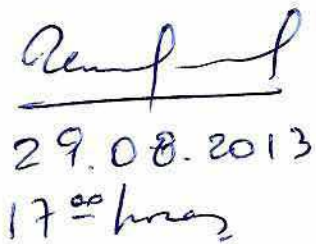 29.08.2013
17 00 horas